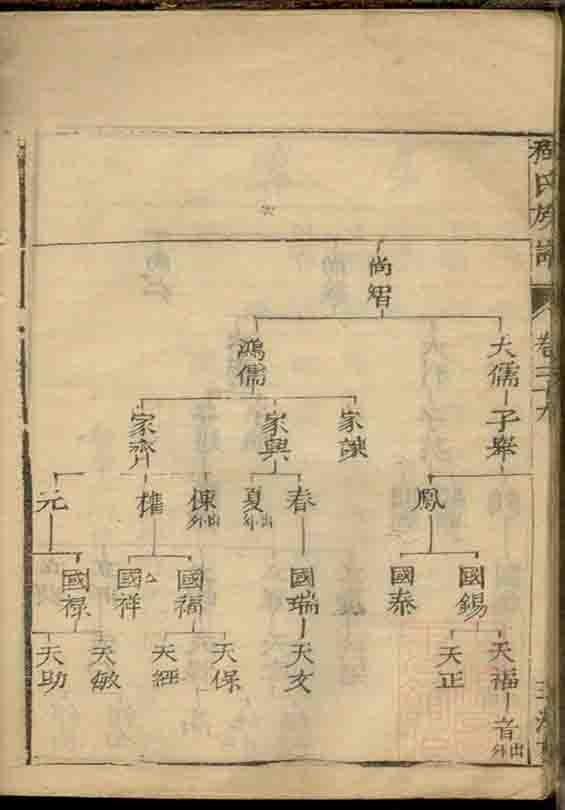 程氏族譜
卷三十九
尚䌷
大儒
鴻儒
子舉
家謨
家興
家齊
鳳
春
夏 外出
倲 外出
權
元
國錫
國泰
國瑞
國福
國祥
國祿
天福
音 外出
天正
天女
天保
天經
天敏
天助